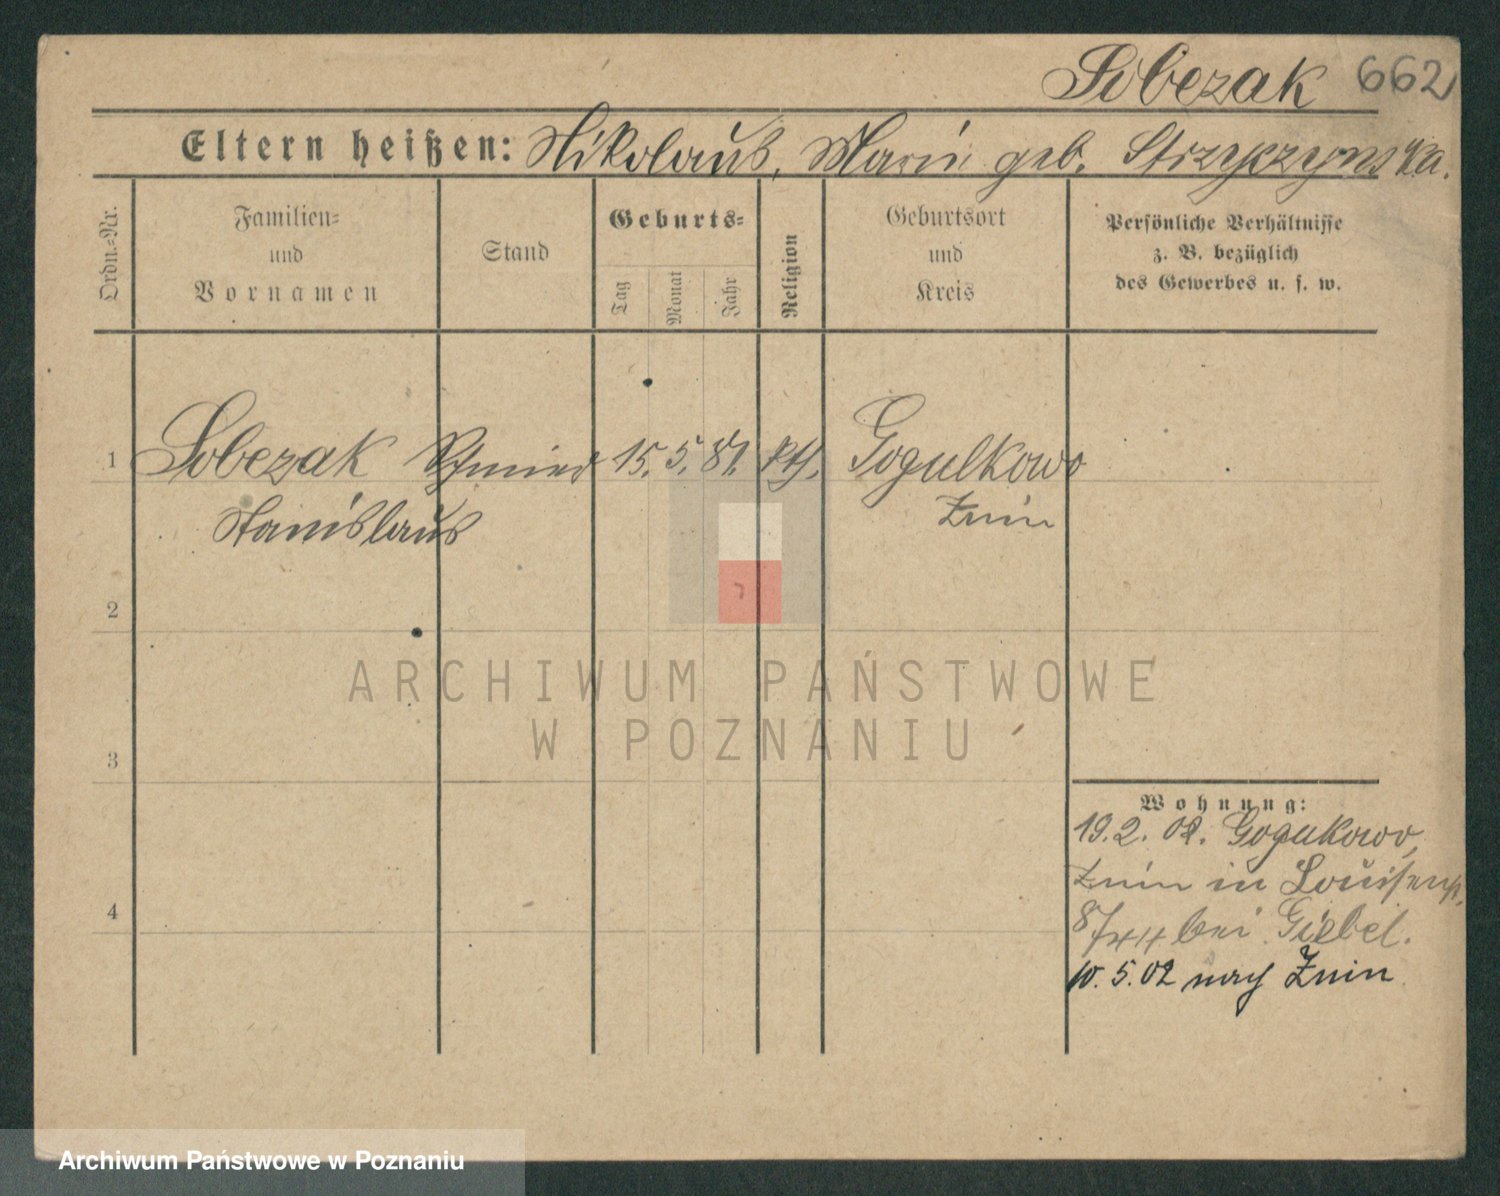 Sobczak 662
Eltern heißen: Nikolaus, Marie geb.
Ordn.=Nr.
Familien=
und
Vornamen
Stand
Geburts=
Tag
Monat
Jahr
Religion
Geburtsort
und
Kreis
Persönliche Verhältnisse
z. B. bezüglich
des Gewerbes u. s. w.
1 Sobczak Schmied 15. 5. 81. kth. Gogulkowo
Stanislaus Znin
2
ARCHIWUM PAŃSTWOWE
W POZNANIU
3
Wohnung:
19. 2. 02. Gogukowo,
Znin in Louisenst.
8/ bei Giebel.
4
10. 5. 02 nach Znin
Archiwum Państwowe w Poznaniu